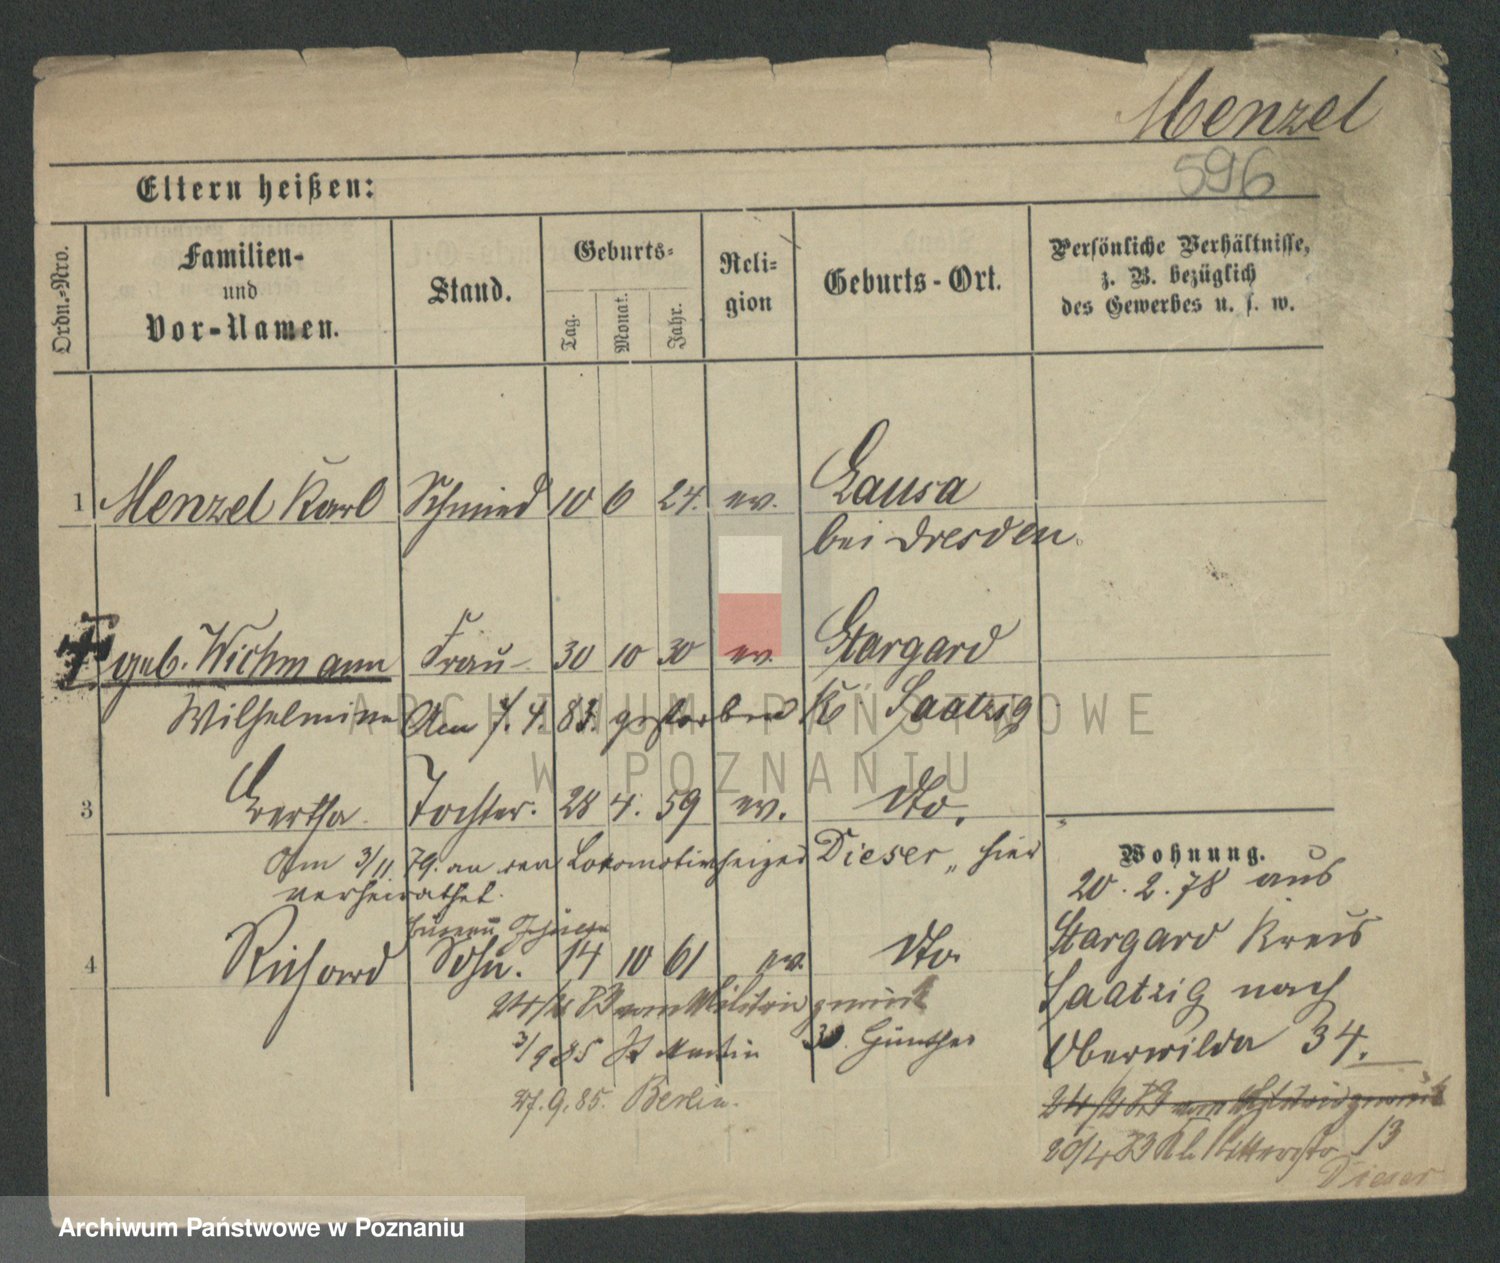 Menzel
596
Eltern heißen:
Ordn.-Nro.
Familien-
und
Vor-Namen.
Stand.
Geburts-
Tag.
Monat.
Jahr.
Reli-
gion
Geburts-Ort.
Persönliche Verhältnisse,
z. B. bezüglich
des Gewerbes u. s. w.
1 Menzel Karl Schmied 10 6 24. ev. Lausa
bei Dresden
geb. Wichmann Frau 30 10 30 ev. Stargard
Wilhelmine Am 7. 4. 83. gestorben K. Saatzig
3 Bertha Tochter. 28 4. 59 ev. dto.
Am 3/11. 79. an den Lokomotivheizer Dieser hier
verheirathet.
4 Richard Sohn. 14 10 61 ev. dto.
vom Militair zurück
3/9 85 St Martin 30. Günther
27. 9. 85. Berlin.
Wohnung.
20. 2. 78 aus
Stargard Kreis
Saatzig nach
Oberwilda 34.
Kl. Ritterstr 13
Dieser
ARCHIWUM PAŃSTWOWE
W POZNANIU
Archiwum Państwowe w Poznaniu